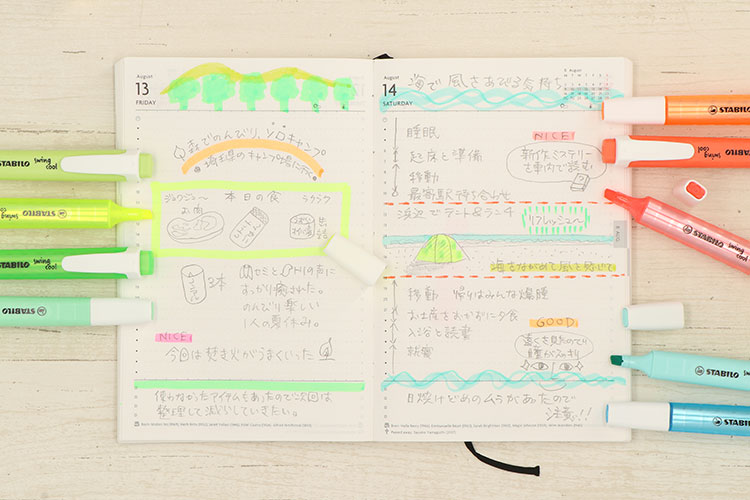 August
13
FRIDAY
森でのんびり、ソロキャンプ。
埼玉県のキャンプ場に行く
ジュワジュー〜
お肉
本日の食
ラクラク
ごはん
缶詰
2本
すっかり癒された。
のんびり楽しい
1人の夏休み。
NICE
今回は焚き火がうまくいった
使わなかったアイテムもあったので次回は
整理して減らしていきたい。
August
14
SATURDAY
海で風をあびる気持ち
August
睡眠
起床と準備
移動
最寄駅待ち合わせ
NICE!
新作ミステリー
を車内で読む
浜辺でテント&ランチ
リフレッシュ〜
海をながめて風を感じて
移動 帰りはみんな爆睡
お土産をおかずに夕食
入浴と読書
就寝
GOOD
遠くを見たので
瞳がスッキリ
日焼けどめのムラがあったので
注意!!
STABILO swing cool
STABILO swing cool
STABILO swing cool
STABILO
STABILO
STABILO swing cool
STABILO swing cool
STABILO
STABILO